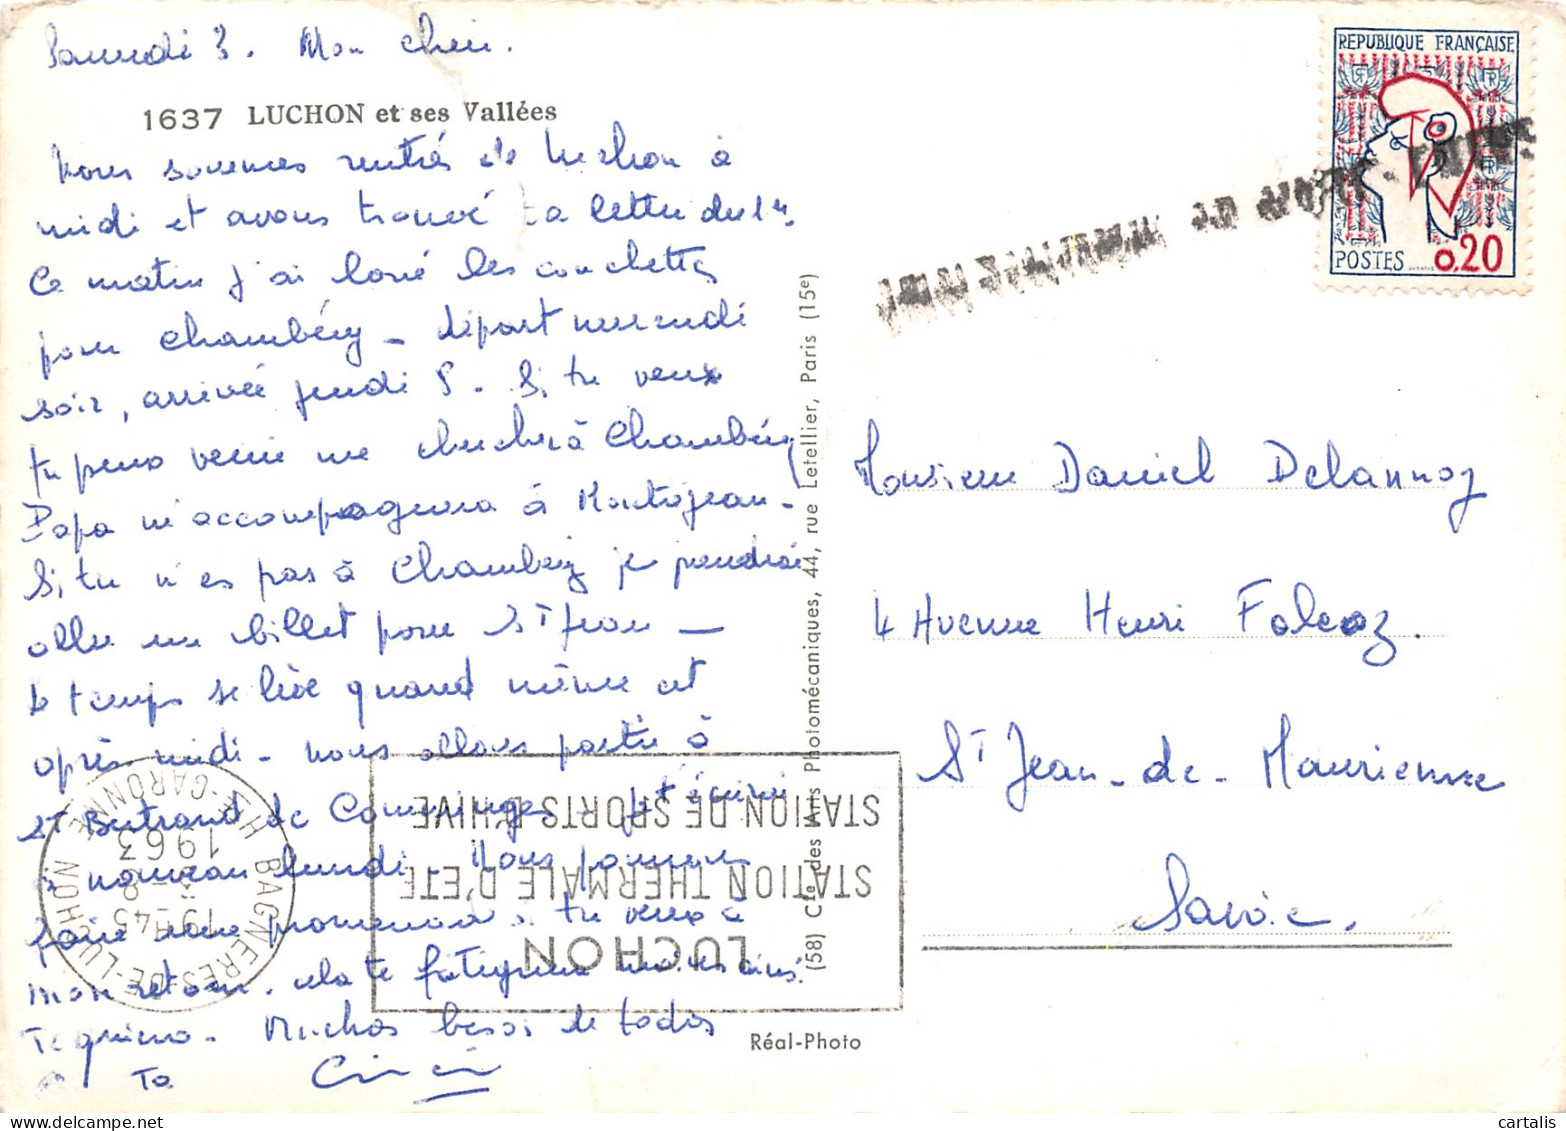 Samedi 3. Mon cheri.
1637 LUCHON et ses Vallées
Nous sommes rentrés de Luchon à
midi et avons trouvé ta lettre du 1er.
Ce matin j'ai loué les couchettes
pour Chambéry - départ mercredi
soir, arrivée jeudi 8. Si tu veux
tu peux venir me chercher à Chambéry
Papa m'accompagnera à Montréjeau -
Si tu n'es pas à Chambéry je prendrai
un billet pour St Jean -
le temps se lève quand même cet
après midi - nous allons partir à
St Bertrand de Comminges - t'écrirai
à nouveau lundi. Nous pourrons
faire une promenade si tu veux à
mon retour. cela te fatiguera moins ainsi.
Te quiero. Muchos besos de todos
Ta
REPUBLIQUE FRANÇAISE
POSTES 0,20
Monsieur Daniel Delannoy
4 Avenue Henri Falcoz.
St Jean-de-Maurienne
Savoie.
(58) Cie des Arts Photomécaniques, 44, rue Letellier, Paris (15e)
Réal-Photo
BAGNERES-DE-LUCHON
HTE-GARONNE
19H45
1963
LUCHON
STATION THERMALE D'ETE
STATION DE SPORTS D'HIVE
cartalis